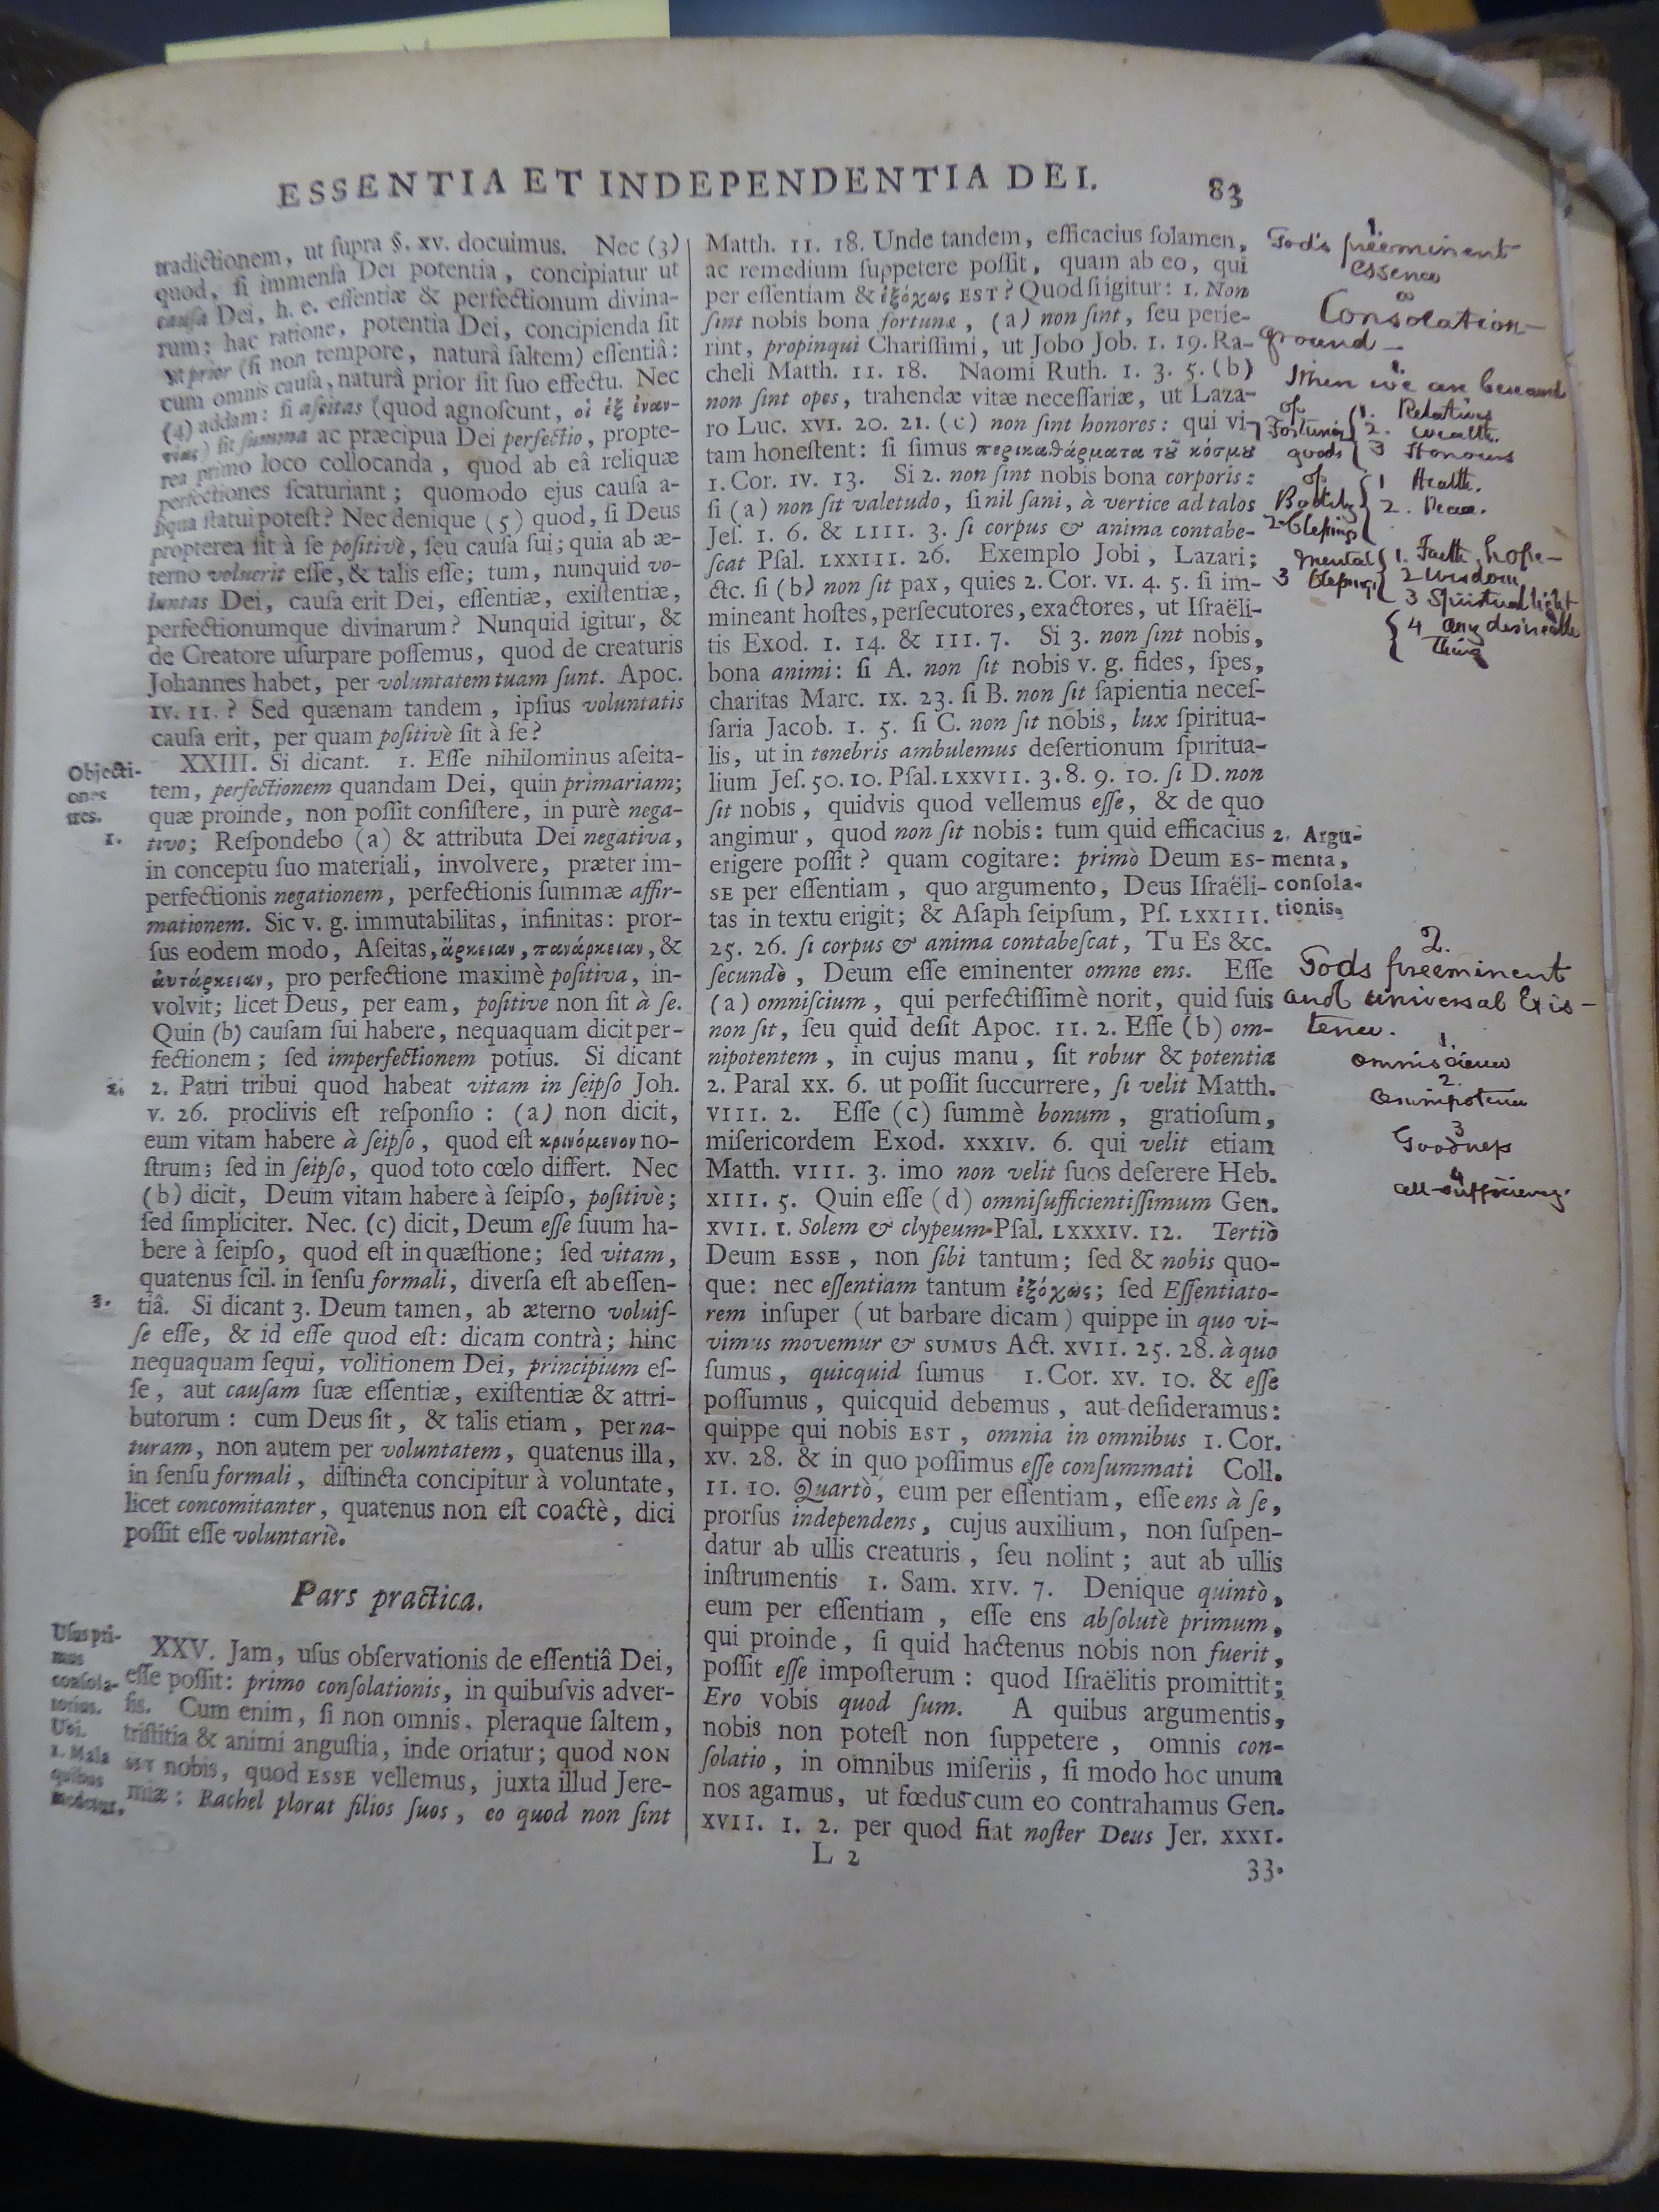 ESSENTIA ET INDEPENDENTIA DEI. 83
tradictionem, ut ſupra §. xv. docuimus. Nec (3)
quod, ſi immenſa Dei potentia, concipiatur ut
cauſa Dei, h. e. eſſentiæ & perfectionum divina-
rum; hac ratione, potentia Dei, concipienda ſit
ut prior (ſi non tempore, naturâ ſaltem) eſſentiâ:
cum omnis cauſa, naturâ prior ſit ſuo effectu. Nec
(4) addam: ſi aſeitas (quod agnoſcunt, οἱ ἐξ ἐναν-
τίας) ſit ſumma ac præcipua Dei perfectio, propte-
rea primo loco collocanda, quod ab eâ reliquæ
perfectiones ſcaturiant; quomodo ejus cauſa a-
liqua ſtatui poteſt? Nec denique (5) quod, ſi Deus
propterea ſit à ſe poſitivè, ſeu cauſa ſui; quia ab æ-
terno voluerit eſſe, & talis eſſe; tum, nunquid vo-
luntas Dei, cauſa erit Dei, eſſentiæ, exiſtentiæ,
perfectionumque divinarum? Nunquid igitur, &
de Creatore uſurpare poſſemus, quod de creaturis
Johannes habet, per voluntatem tuam ſunt. Apoc.
IV. 11.? Sed quænam tandem, ipſius voluntatis
cauſa erit, per quam poſitivè ſit à ſe?
Objecti-
ones
tres.
1.
XXIII. Si dicant. 1. Eſſe nihilominus aſeita-
tem, perfectionem quandam Dei, quin primariam;
quæ proinde, non poſſit conſiſtere, in purè nega-
tivo; Reſpondebo (a) & attributa Dei negativa,
in conceptu ſuo materiali, involvere, præter im-
perfectionis negationem, perfectionis ſummæ affir-
mationem. Sic v. g. immutabilitas, infinitas: pror-
ſus eodem modo, Aſeitas, ἄρκειαν, πανάρκειαν, &
ἀυτάρκειαν, pro perfectione maximè poſitiva, in-
volvit; licet Deus, per eam, poſitive non ſit à ſe.
Quin (b) cauſam ſui habere, nequaquam dicit per-
fectionem; ſed imperfectionem potius. Si dicant
2.
2. Patri tribui quod habeat vitam in ſeipſo Joh.
V. 26. proclivis eſt reſponſio: (a) non dicit,
eum vitam habere à ſeipſo, quod eſt κρινόμενον no-
ſtrum; ſed in ſeipſo, quod toto cœlo differt. Nec
(b) dicit, Deum vitam habere à ſeipſo, poſitivè;
ſed ſimpliciter. Nec. (c) dicit, Deum eſſe ſuum ha-
bere à ſeipſo, quod eſt in quæſtione; ſed vitam,
quatenus ſcil. in ſenſu formali, diverſa eſt ab eſſen-
3.
tiâ. Si dicant 3. Deum tamen, ab æterno voluiſ-
ſe eſſe, & id eſſe quod eſt: dicam contrà; hinc
nequaquam ſequi, volitionem Dei, principium eſ-
ſe, aut cauſam ſuæ eſſentiæ, exiſtentiæ & attri-
butorum: cum Deus ſit, & talis etiam, per na-
turam, non autem per voluntatem, quatenus illa,
in ſenſu formali, diſtincta concipitur à voluntate,
licet concomitanter, quatenus non eſt coactè, dici
poſſit eſſe voluntariè.
Pars practica.
Uſus pri-
mus
conſola-
torius.
Ubi.
1. Mala
quibus
medetur.
XXV. Jam, uſus obſervationis de eſſentiâ Dei,
eſſe poſſit: primo conſolationis, in quibuſvis adver-
ſis. Cum enim, ſi non omnis, pleraque ſaltem,
triſtitia & animi anguſtia, inde oriatur; quod NON
SIT nobis, quod ESSE vellemus, juxta illud Jere-
miæ: Rachel plorat filios ſuos, eo quod non ſint
Matth. 11. 18. Unde tandem, efficacius ſolamen,
ac remedium ſuppetere poſſit, quam ab eo, qui
per eſſentiam & ἐξόχως EST? Quod ſi igitur: 1. Non
ſint nobis bona fortunæ, (a) non ſint, ſeu perie-
rint, propinqui Chariſſimi, ut Jobo Job. 1. 19. Ra-
cheli Matth. 11. 18. Naomi Ruth. 1. 3. 5. (b)
non ſint opes, trahendæ vitæ neceſſariæ, ut Laza-
ro Luc. XVI. 20. 21. (c) non ſint honores: qui vi-
tam honeſtent: ſi ſimus περικαθάρματα τȣ͂ κόσμȣ
1. Cor. IV. 13. Si 2. non ſint nobis bona corporis:
ſi (a) non ſit valetudo, ſi nil ſani, à vertice ad talos
Jeſ. 1. 6. & LIII. 3. ſi corpus & anima contabe-
ſcat Pſal. LXXIII. 26. Exemplo Jobi, Lazari;
&c. ſi (b) non ſit pax, quies 2. Cor. VI. 4. 5. ſi im-
mineant hoſtes, perſecutores, exactores, ut Iſraëli-
tis Exod. 1. 14. & III. 7. Si 3. non ſint nobis,
bona animi: ſi A. non ſit nobis v. g. fides, ſpes,
charitas Marc. IX. 23. ſi B. non ſit ſapientia neceſ-
ſaria Jacob. 1. 5. ſi C. non ſit nobis, lux ſpiritua-
lis, ut in tenebris ambulemus deſertionum ſpiritua-
lium Jeſ. 50. 10. Pſal. LXXVII. 3. 8. 9. 10. ſi D. non
ſit nobis, quidvis quod vellemus eſſe, & de quo
angimur, quod non ſit nobis: tum quid efficacius
erigere poſſit? quam cogitare: primò Deum ES-
SE per eſſentiam, quo argumento, Deus Iſraëli-
tas in textu erigit; & Aſaph ſeipſum, Pſ. LXXIII.
25. 26. ſi corpus & anima contabeſcat, Tu Es &c.
ſecundò, Deum eſſe eminenter omne ens. Eſſe
(a) omniſcium, qui perfectiſſimè norit, quid ſuis
non ſit, ſeu quid deſit Apoc. 11. 2. Eſſe (b) om-
nipotentem, in cujus manu, ſit robur & potentia
2. Paral XX. 6. ut poſſit ſuccurrere, ſi velit Matth.
VIII. 2. Eſſe (c) ſummè bonum, gratioſum,
miſericordem Exod. XXXIV. 6. qui velit etiam
Matth. VIII. 3. imo non velit ſuos deſerere Heb.
XIII. 5. Quin eſſe (d) omniſufficientiſſimum Gen.
XVII. 1. Solem & clypeum Pſal. LXXXIV. 12. Tertiò
Deum ESSE, non ſibi tantum; ſed & nobis quo-
que: nec eſſentiam tantum ἐξόχως; ſed Eſſentiato-
rem inſuper (ut barbare dicam) quippe in quo vi-
vimus movemur & SUMUS Act. XVII. 25. 28. à quo
ſumus, quicquid ſumus 1. Cor. XV. 10. & eſſe
poſſumus, quicquid debemus, aut deſideramus:
quippe qui nobis EST, omnia in omnibus 1. Cor.
XV. 28. & in quo poſſimus eſſe conſummati Coll.
11. 10. Quartò, eum per eſſentiam, eſſe ens à ſe,
prorſus independens, cujus auxilium, non ſuſpen-
datur ab ullis creaturis, ſeu nolint; aut ab ullis
inſtrumentis 1. Sam. XIV. 7. Denique quintò,
eum per eſſentiam, eſſe ens abſolutè primum,
qui proinde, ſi quid hactenus nobis non fuerit,
poſſit eſſe impoſterum: quod Iſraëlitis promittit;
Ero vobis quod ſum. A quibus argumentis,
nobis non poteſt non ſuppetere, omnis con-
ſolatio, in omnibus miſeriis, ſi modo hoc unum
nos agamus, ut fœdus cum eo contrahamus Gen.
XVII. 1. 2. per quod fiat noſter Deus Jer. XXXI.
L 2
33.
1.
God's preeminent
essence
a
Consolation
ground
When we are bereaved
of
Fortunes
goods
1. Relatives
2. wealth.
3 Honours
of
Bodily
2 blessings
1 Health.
2. Peace.
mental
3 blessings
1. Faith, hope
2 wisdom
3 Spiritual light
4 any desireable
thing
2. Argu-
menta,
conſola-
tionis.
2.
Gods preeminent
and universal Exis-
tence.
1.
omniscience
2.
Omnipotence
3
Goodness
4
all-sufficiency.